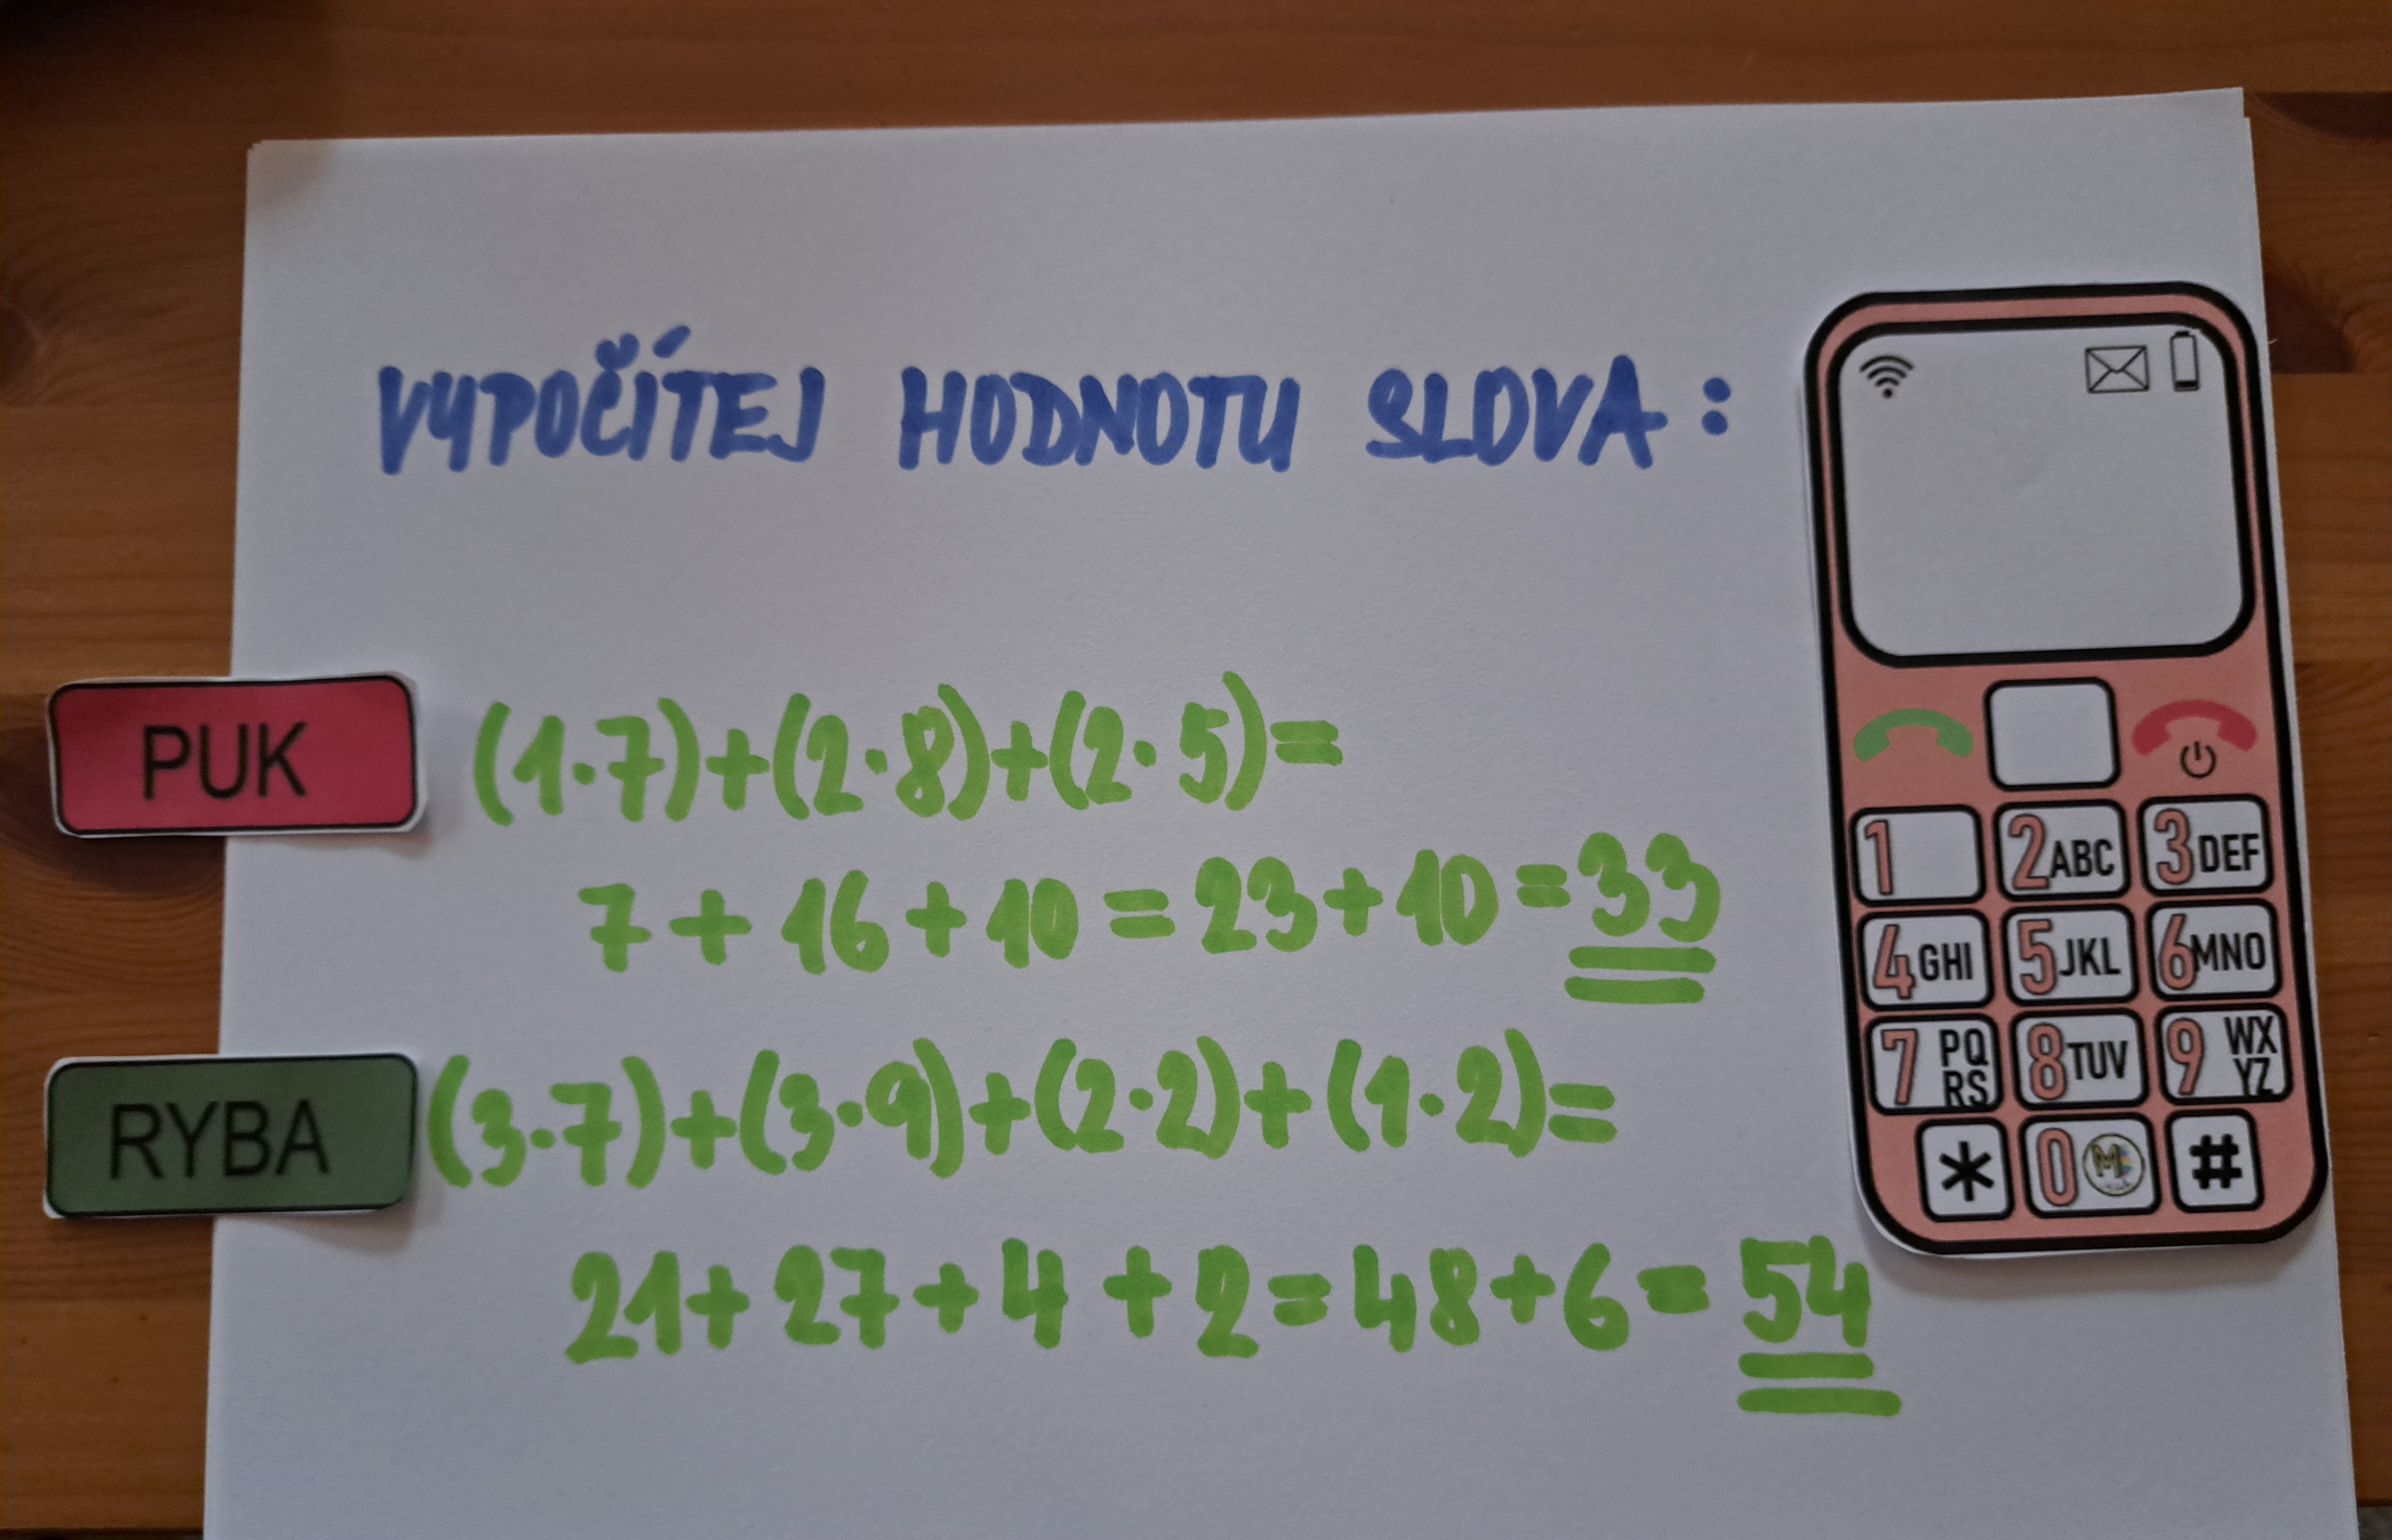 VYPOČÍTEJ HODNOTU SLOVA:
PUK
(1·7)+(2·8)+(2·5)=
7+16+10=23+10=33
RYBA
(3·7)+(3·9)+(2·2)+(1·2)=
21+27+4+2=48+6=54
1
2 ABC
3 DEF
4 GHI
5 JKL
6 MNO
7 PQ
RS
8 TUV
9 WX
YZ
*
0
#